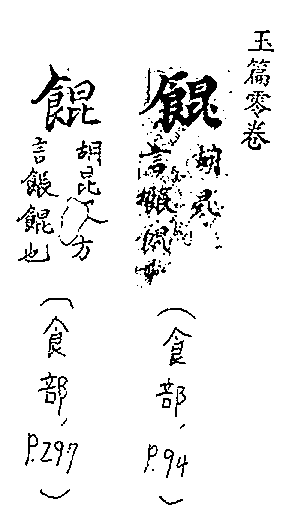 玉篇零卷
餛
胡昆
言餛也
(食部, P.94)
餛
胡昆反方
言餛也
(食部, P.297)